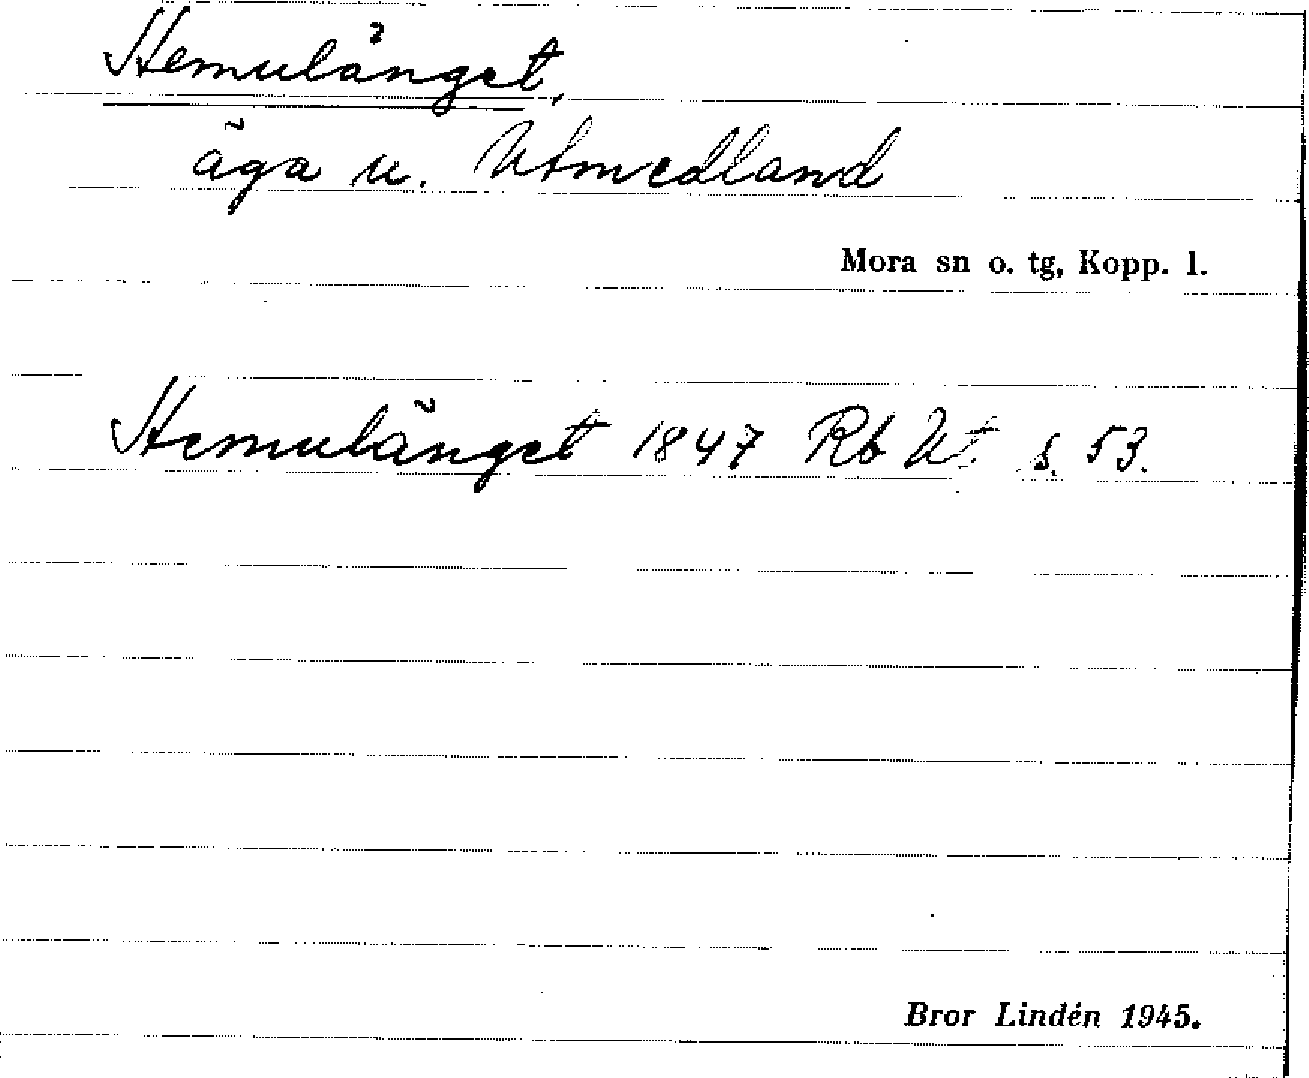 Hemulänget,
äga u. Utmedland
Mora sn o. tg, Kopp. l.
Hemulänget 1847 Rb Ut s. 53.
Bror Lindén 1945.